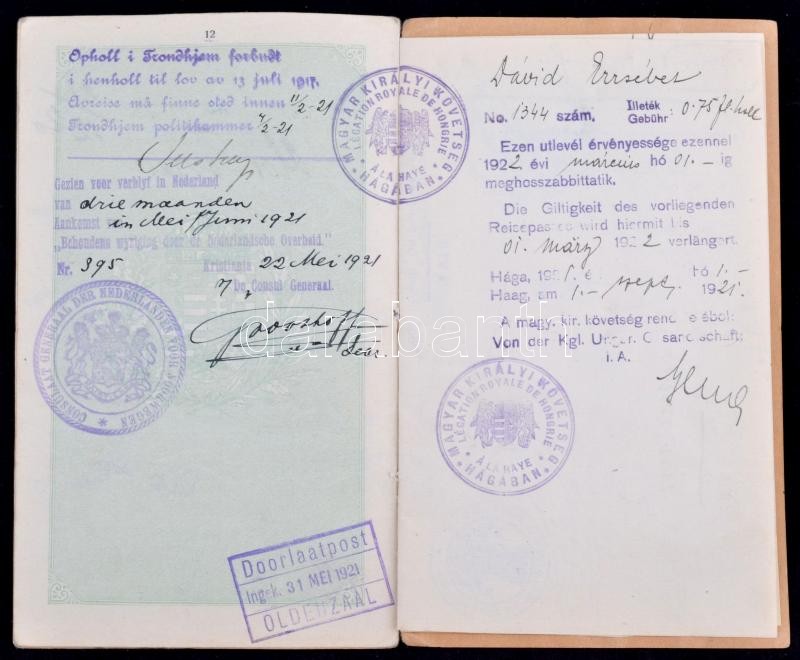 12
Opholl i Trondhjem forbudt
i henholl til lov av 13 juli 1917.
Avreise må finne sted innen 11/2-21
Trondhjem politikammer 4/2-21
Gezien voor verblyf in Nederland
van drie maanden
Aankomst in Mei/Juni 1921
"Behoudens wyziging door de Nederlandsche Overheid."
Nr. 395 Kristiania 22 Mei 1921
De Consul Generaal.
CONSULAAT GENERAAL DER NEDERLANDEN VOOR NOORWEGEN
Doorlaatpost
Ingek. 31 MEI 1921
OLDENZAAL
MAGYAR KIRÁLYI KÖVETSÉG HÁGÁBAN
LÉGATION ROYALE DE HONGRIE À LA HAYE
Dávid Erzsébet
No. 1344 szám. Illeték
Gebühr: 0.75
Ezen utlevél érvényessége ezennel
1922 évi március hó 01.- ig
meghosszabbittatik.
Die Giltigkeit des vorliegenden
Reisepasses wird hiermit bis
01. märz 1922 verlängert.
Hága, 1921 é hó 1.-
Haag, am 1.- sept. 1921.
A magy. kir. követség rende ébõl:
Von der Kgl. Ungar. G sandschaft:
i. A.
MAGYAR KIRÁLYI KÖVETSÉG HÁGÁBAN
LÉGATION ROYALE DE HONGRIE À LA HAYE
darabanth